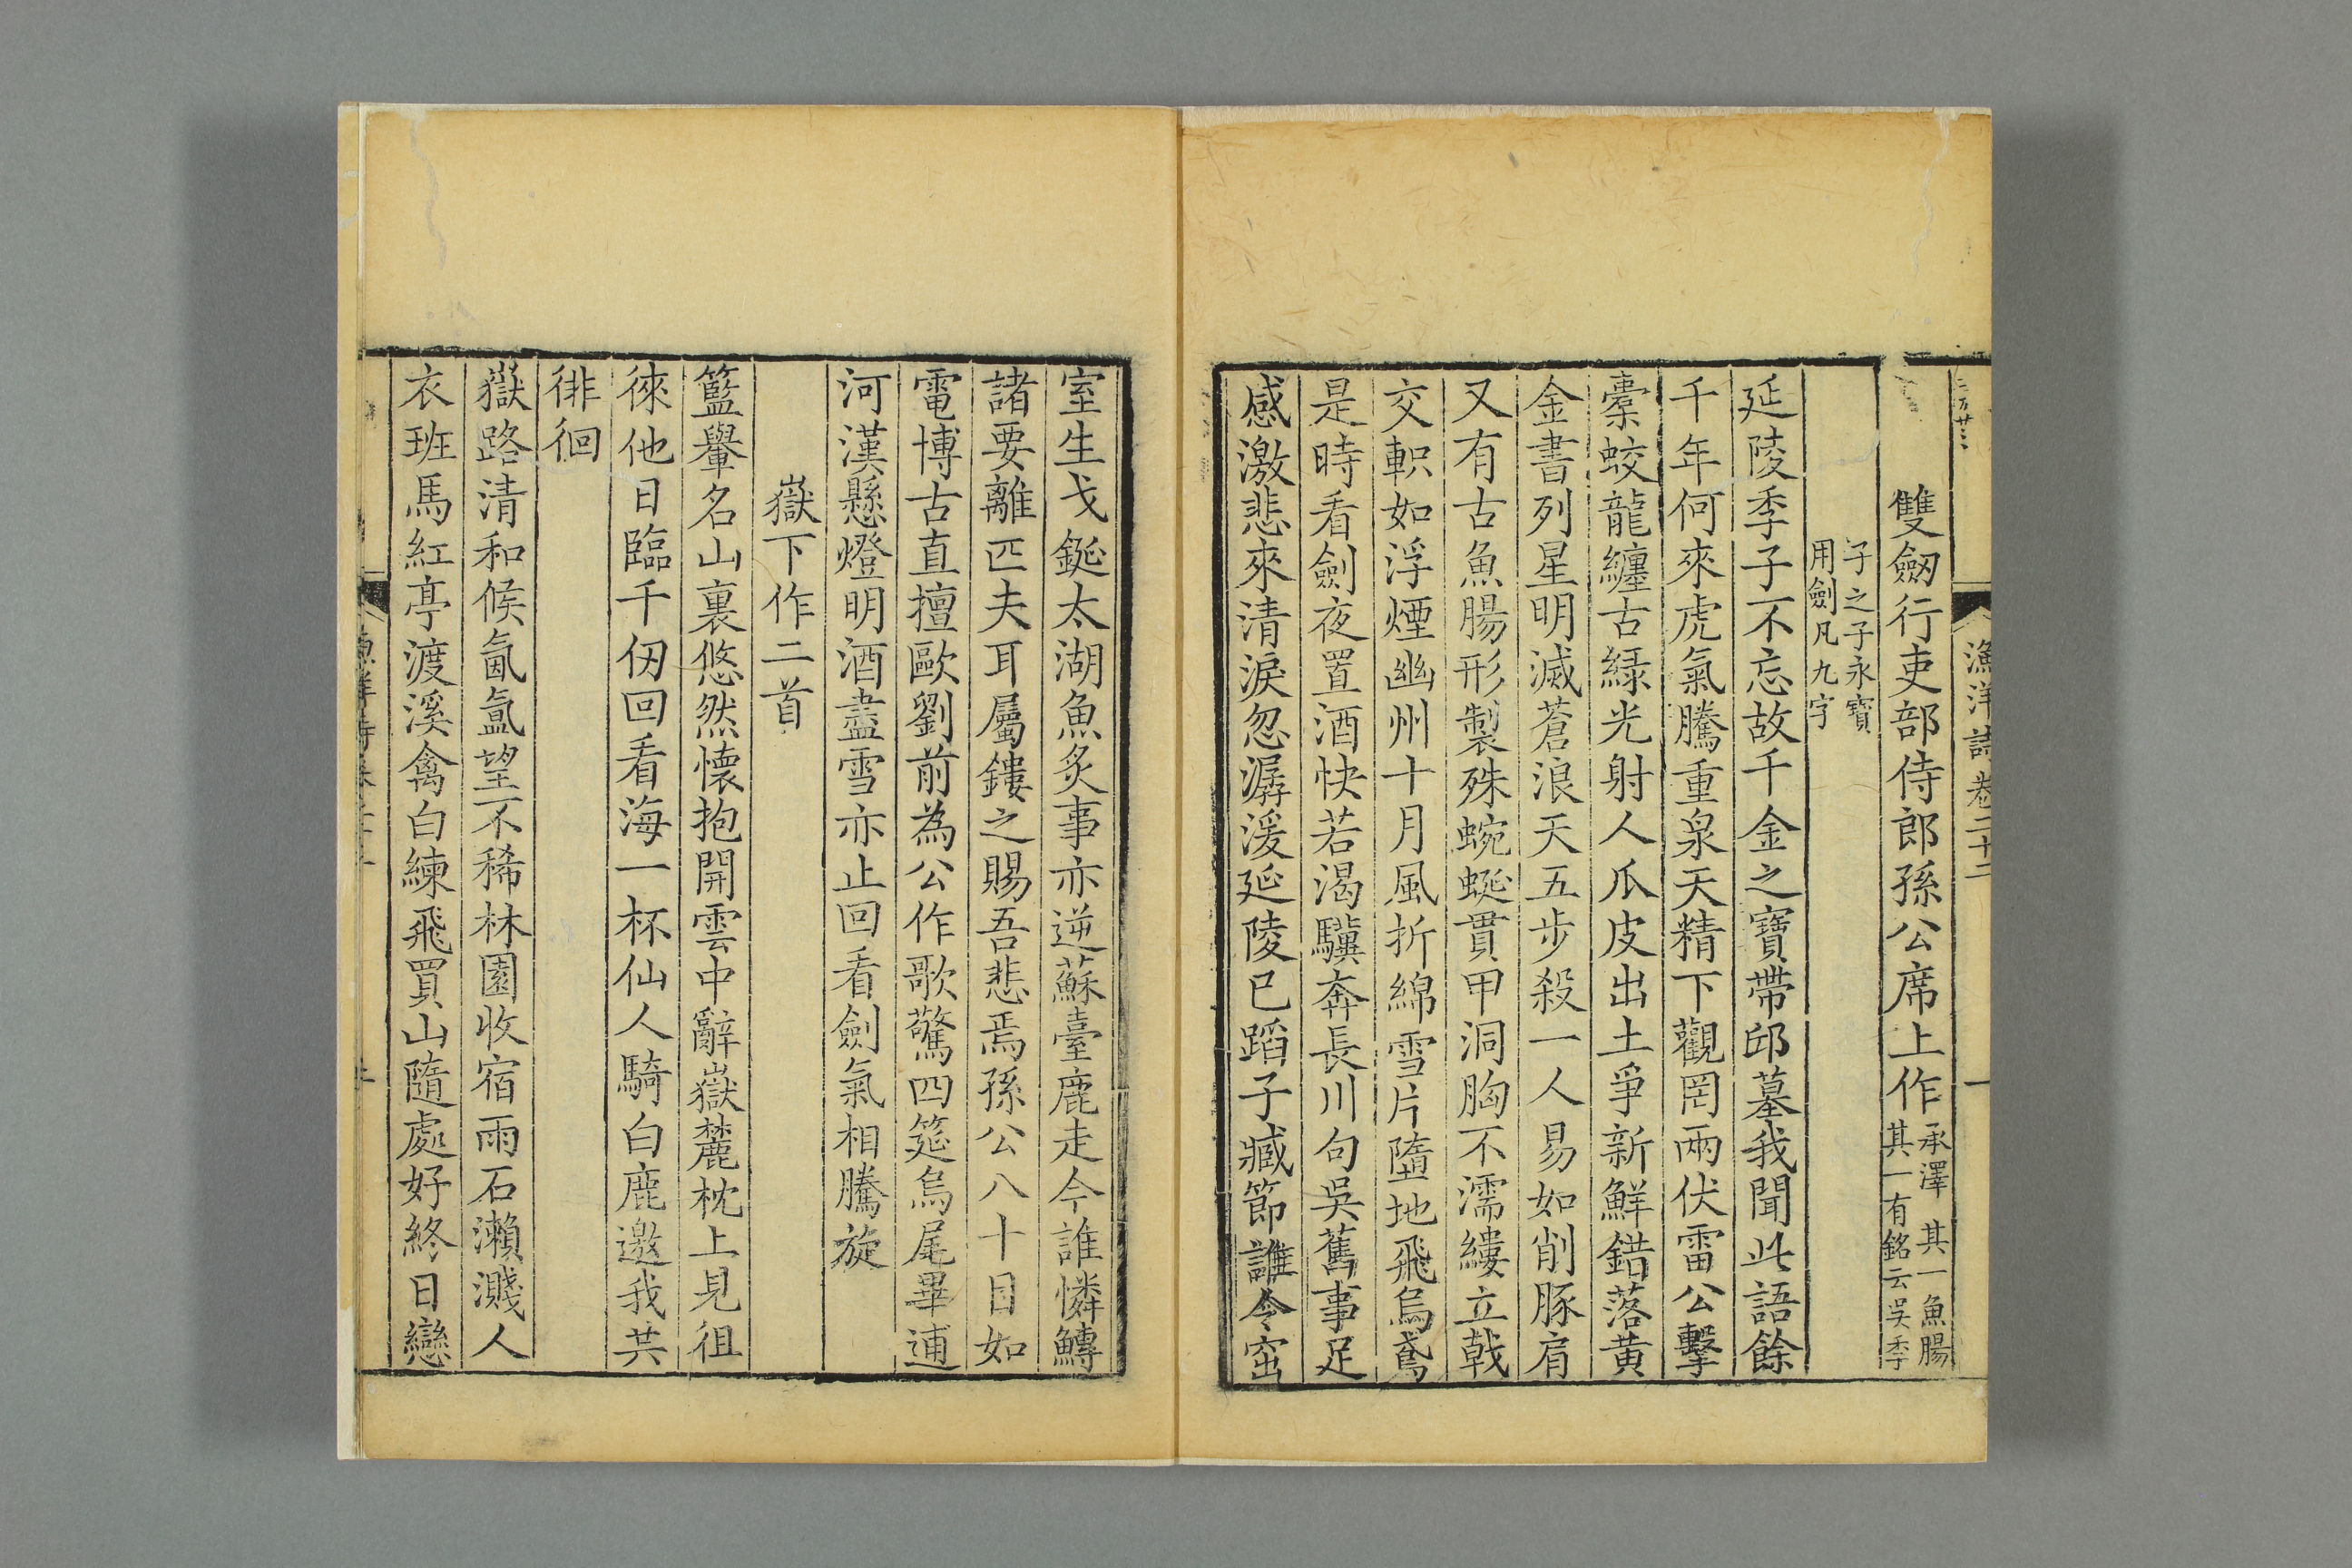 漁洋詩卷二十二
一
雙劒行吏部侍郎孫公席上作承澤 其一魚腸
其一有銘云吴季
子之子永寶
用劍凡九字
延陵季子不忘故千金之寶帶邱墓我聞此語餘
千年何來虎氣騰重泉天精下觀罔兩伏雷公擊
橐蛟龍纏古綠光射人爪皮出土爭新鮮錯落黄
金書列星明滅蒼浪天五步殺一人易如削豚肩
又有古魚腸形製殊蜿蜒貫甲洞胸不濡縷立戟
交軹如浮煙幽州十月風折綿雪片墮地飛烏鳶
是時看劍夜置酒快若渴驥奔長川句吳舊事足
感激悲來清淚忽潺湲延陵已蹈子臧節誰令窋
室生戈鋋太湖魚炙事亦逆蘇臺鹿走今誰憐鱄
諸要離匹夫耳屬鏤之賜吾悲焉孫公八十目如
電博古直擅歐劉前為公作歌驚四筵烏尾畢逋
河漢懸燈明酒盡雪亦止回看劍氣相騰旋
嶽下作二首
籃轝名山裏悠然懷抱開雲中辭嶽麓枕上見徂
徠他日臨千仞回看海一杯仙人騎白鹿邀我共
徘徊
嶽路清和候氤氳望不稀林園收宿雨石瀨濺人
衣班馬紅亭渡溪禽白練飛買山隨處好終日戀